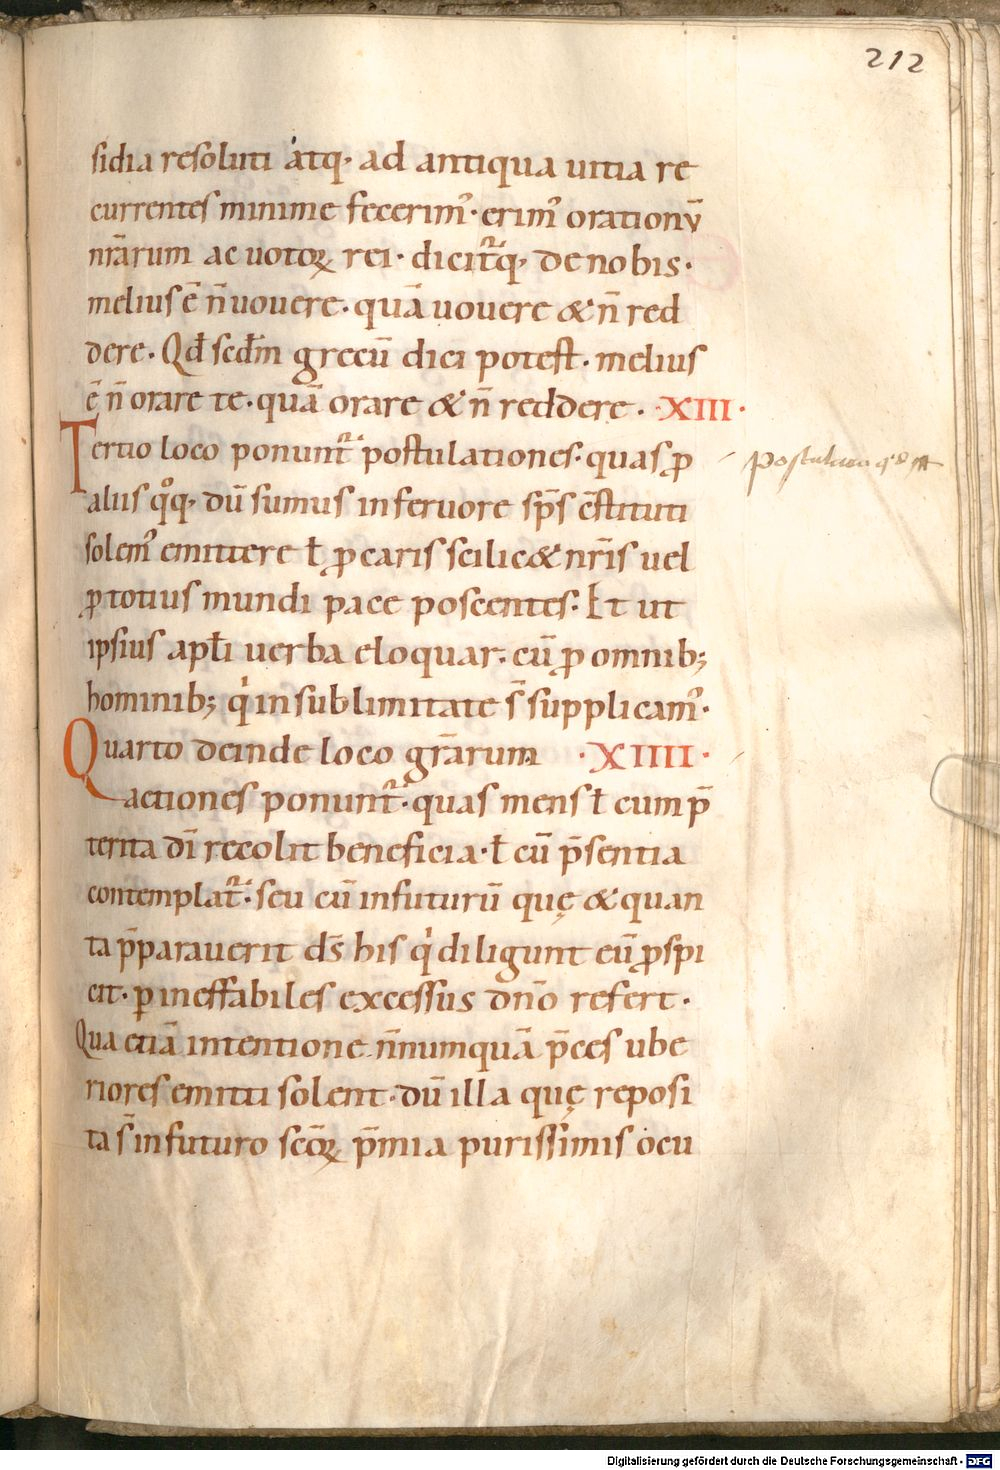 212
sidia resoluti atq; ad antiqua uitia re
currentes minime fecerim᾽· erim᾽ orationū
nr̄arum ac uotoꝝ rei · dicit᷑q; de nobis ·
melius ē n̄ uouere · quā uouere & n̄ red
dere · Qd̄ scd̄m grecū dici potest · melius
ē n̄ orare te · quā orare & n̄ reddere · ·XIII·
Tertio loco ponunt᷑ postulationes · quas ꝓ
aliis qͦq; dū sumus in feruore sp̄s c̄stituti
solem᾽ emittere ł ꝓ caris scilic& nr̄is uel
ꝓ totius mundi pace poscentes · Et ut
ipsius apłi uerba eloquar · cū ꝓ omnib;
hominib; qͥ in sublimitate s̄ supplicam᾽·
Quarto deinde loco gr̄arum ·XIIII·
actiones ponunt᷑ · quas mens ł cum p̄
terita dī recolit beneficia · ł cū p̄sentia
contemplat᷑ · seu cū in futurū quę & quan
ta p̄parauerit d̄s his qͥ diligunt eū ꝓspi
cit · ꝑ ineffabiles excessus dn̄o refert ·
Qua etiā intentione n̄numquā p̄ces ube
riores emitti solent · dū illa quę reposi
ta s̄ in futuro sc̄oꝝ p̄mia purissimis ocu
Digitalisierung gefördert durch die Deutsche Forschungsgemeinschaft - DFG